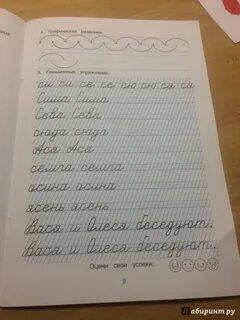 4. Графические задания.
5. Письменные упражнения.
си си се се сю сю ся ся
Сима Сима
Сева Сева
сюда сюда
Ася Ася
сёмга сёмга
осина осина
ясень ясень
Вася и Олеся беседуют.
Вася и Олеся беседуют.
Оцени свои успехи:
9
Лабиринт.ру